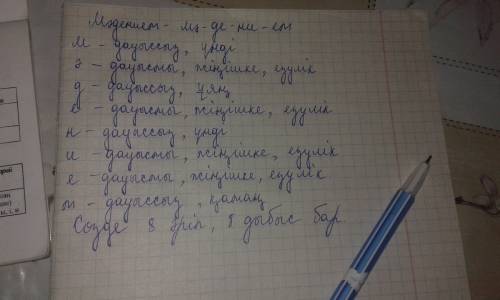 Мәдениет - мә-де-ни-ет
М - дауыссыз, үнді
ә - дауысты, жіңішке, езулік
д - дауыссыз, ұяң
е - дауысты, жіңішке, езулік
н - дауыссыз, үнді
и - дауысты, жіңішке, езулік
е - дауысты, жіңішке, езулік
т - дауыссыз, қатаң
Сөзде 8 әріп, 8 дыбыс бар